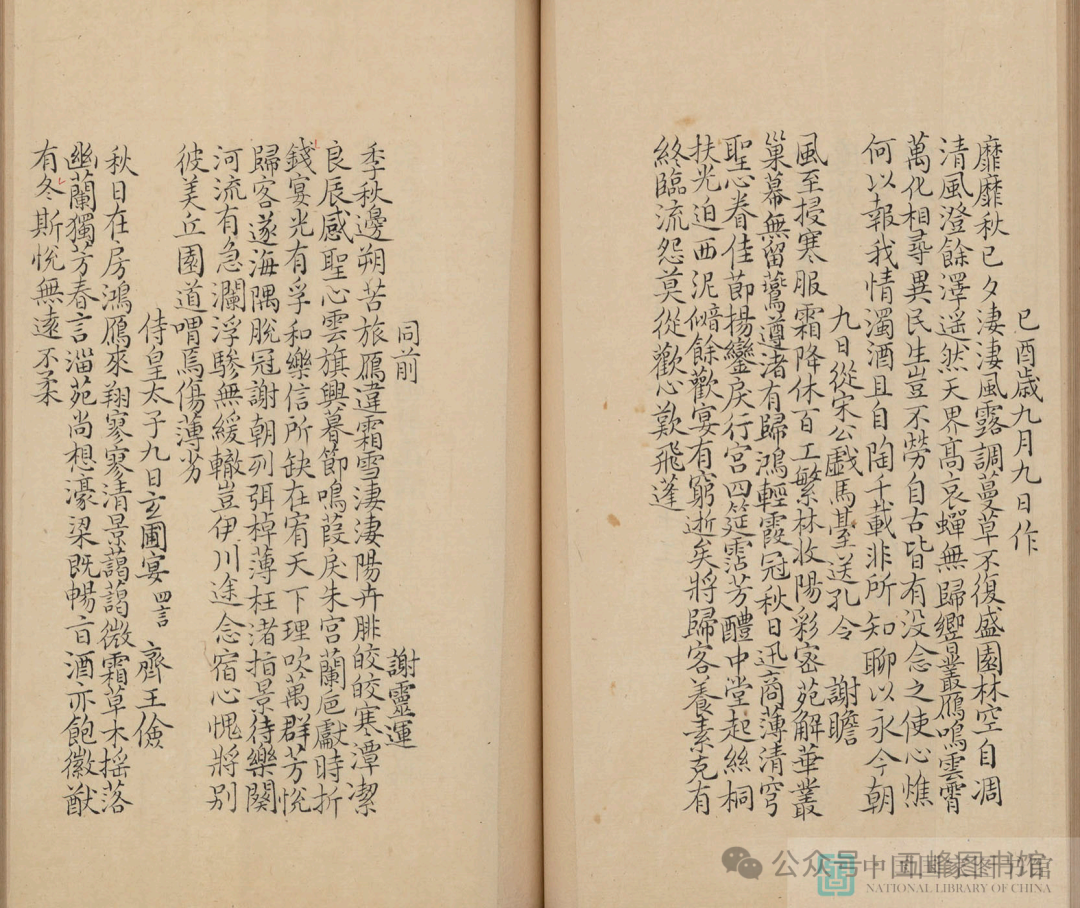 己酉歲九月九日作
靡靡秋已夕淒淒風露調蔓草不復盛園林空自凋
清風澄餘澤遥然天界高哀蟬無歸響叢鴈鳴雲霄
萬化相尋異民生豈不勞自古皆有没念之使心憔
何以報我情濁酒且自陶千載非所知聊以永今朝
九日從宋公戲馬臺送孔令 謝瞻
風至授寒服霜降休百工繁林收陽彩密苑解華叢
巢幕無留鷰遵渚有歸鴻輕霞冠秋日迅商薄清穹
聖心眷佳節揚鑾戾行宮四筵霑芳醴中堂起絲桐
扶光迫西汜餘歡宴有窮逝矣將歸客養素克有
終臨流怨莫從歡心歎飛蓬
同前 謝靈運
季秋邊朔苦旅鴈違霜雪淒淒陽卉腓皎皎寒潭潔
良辰感聖心雲旗興暮節鳴葭戾朱宮蘭巵獻時折
錢宴光有孚和樂信所缺在宥天下理吹萬群芳悅
歸客遂海隅脫冠謝朝列弭棹薄枉渚指景待樂闋
河流有急瀾浮驂無緩轍豈伊川途念宿心愧將别
彼美丘園道喟焉傷薄劣
侍皇太子九日玄圃宴 四言 齊王儉
秋日在房鴻鴈來翔寥寥清景藹藹微霜草木摇落
幽蘭獨芳春言淄苑尚想濠梁既暢旨酒亦飽徽猷
有冬斯悅無遠不柔
公众号·西峰图书馆
中国国家图书馆
NATIONAL LIBRARY OF CHINA